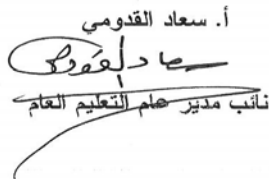 أ. سعاد القدومي
سعاد القدومي
نائب مدير عام التعليم العام